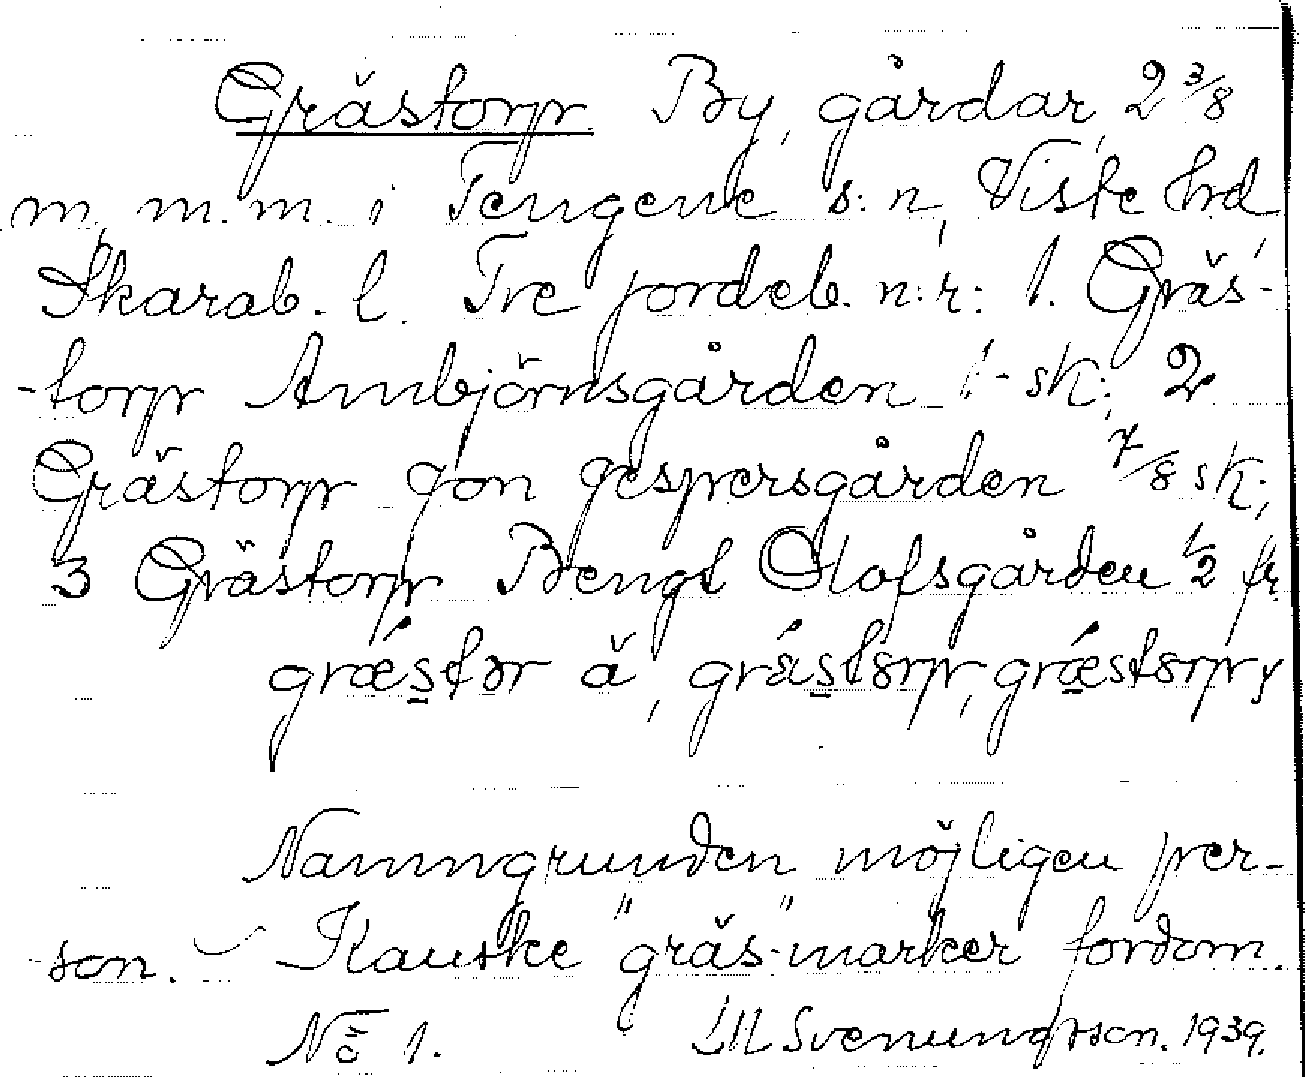 Grästorp By, gårdar, 2 3/8
m. m.m. i Tengene s:n, Viste hrd
Skarab. l. Tre jordeb. n:r: 1. Gräs-
-torp Ambjörnsgården 1 sk; 2
Grästorp Jon Jespersgården 7/8 sk;
3 Grästorp Bengt Olofsgården 1/2 fr
græstər ä, gräs
Namngrunden möjligen per-
son. - Kanske "gräs"-marker fordom.
No 1. Svenungsson. 1939.